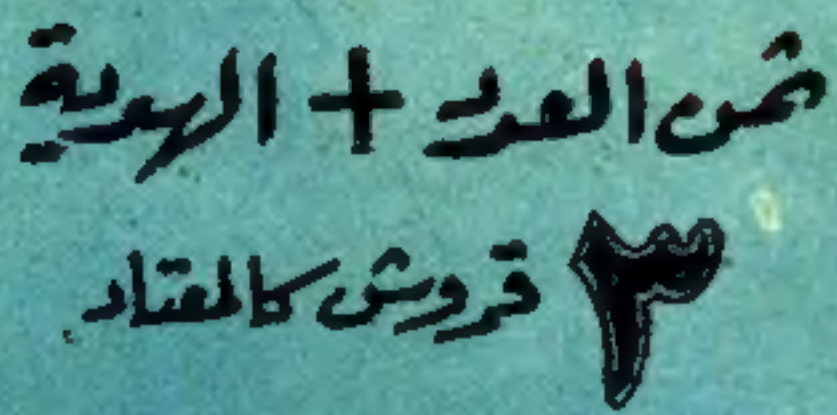 ثمن العدد + الهدية
٣ قروش كالمعتاد